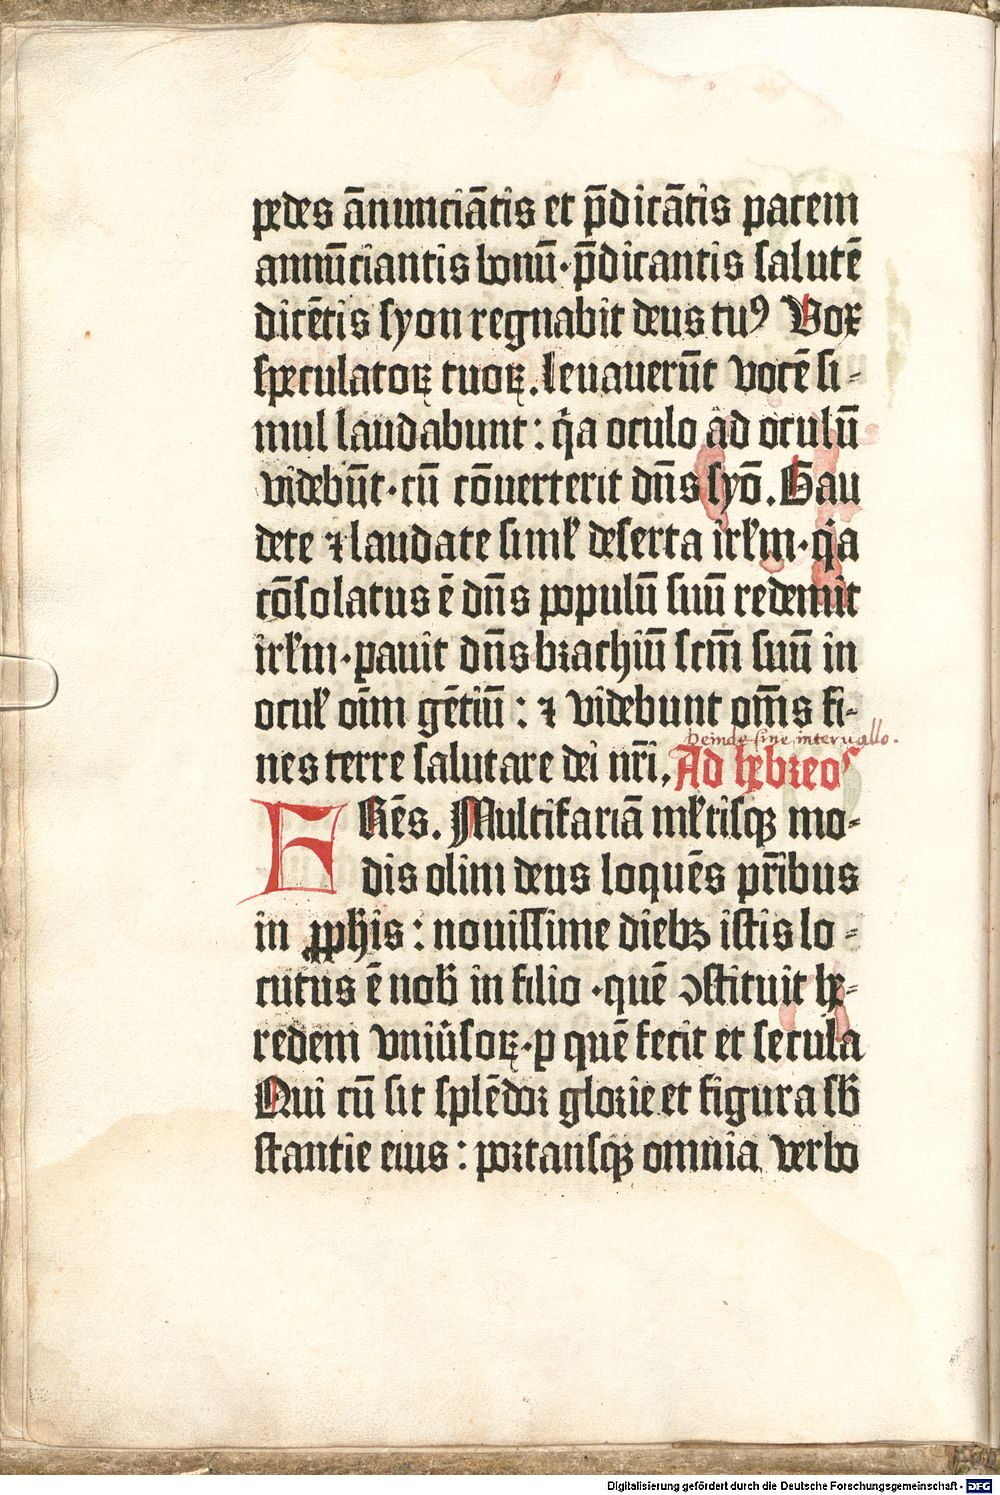 pedes ānunciātis et p̄dicātis pacem
annūciantis bonū·p̄dicantis salutē
dicētis syon regnabit deus tuꝰ Vox
speculatoꝝ tuoꝝ. leuauerūt vocē si⸗
mul laudabunt: qͥa oculo ad oculū
videbūt·cū cōuerterit dn̄s syō. Gau
dete ⁊ laudate siml̓ deserta irl̓m·qͥa
cōsolatus ē dn̄s populū suū redemit
irl̓m·parauit dn̄s brachiū scm̄ suū in
ocul̓ oīm gētiū: ⁊ videbunt om̄s fi⸗
deinde sine interuallo.
nes terre salutare dei nr̄i, Ad hebreos
FRēs. Multifariā ml̓tisqꝫ mo⸗
dis olim deus loquēs pr̄ibus
in ꝓphis: nouissime diebꝫ istis lo⸗
cutus ē nob̄ in filio·quē ꝯstituit he⸗
redem vniūsoꝝ·ꝑ quē fecit et secula
Qui cū sit splēdor glorie et figura sb̄
stantie eius: portansqꝫ omnia verbo
Digitalisierung gefördert durch die Deutsche Forschungsgemeinschaft - DFG